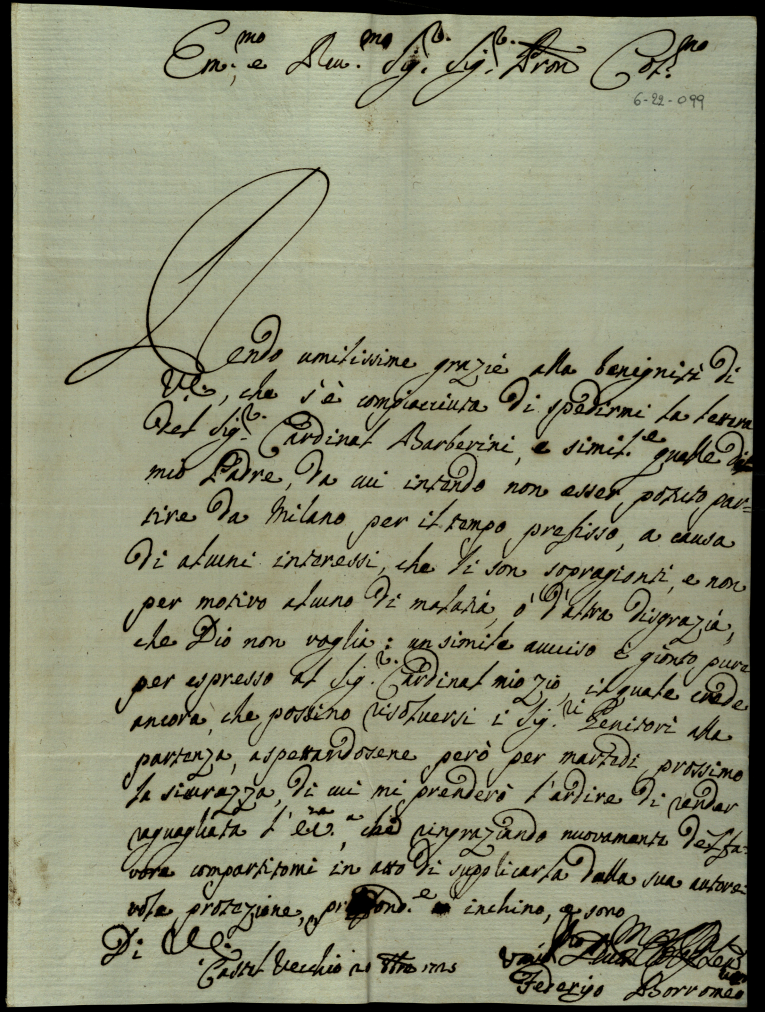 Em.mo e Reu.mo Sig.r Sig.r Pron Col.mo
6-22-099
Rendo umilissime grazie alla benignità di
V.E., che s'è compiacciuta di spedirmi la lettera
del Sig.r Cardinal Barberini, e simil.e quelle di
mio Padre, da cui intendo non esser potuto par=
tire da Milano per il tempo prefisso, a causa
di alcuni interessi, che li son sopragionti, e non
per motivo alcuno di malatia, ò d'altra disgrazia,
che Dio non voglia: un simile avviso è gionto pure
per espresso al Sig.r Cardinal mio Zio, il quale crede
ancora, che possino risolversi i Sig.ri Genitori alla
partenza, aspettandosene però per martedì prossimo
la sicurazza, di cui mi prenderò l'ardire di render
raguagliata l'E.V.a, che ringraziando nuovamente del fa=
vore compartitomi in atto di supplicarla della sua autore
vole protezione, profond.e inchino, e sono
Di V.E.
Castel Vecchio 20 ttre
Federigo Borromeo